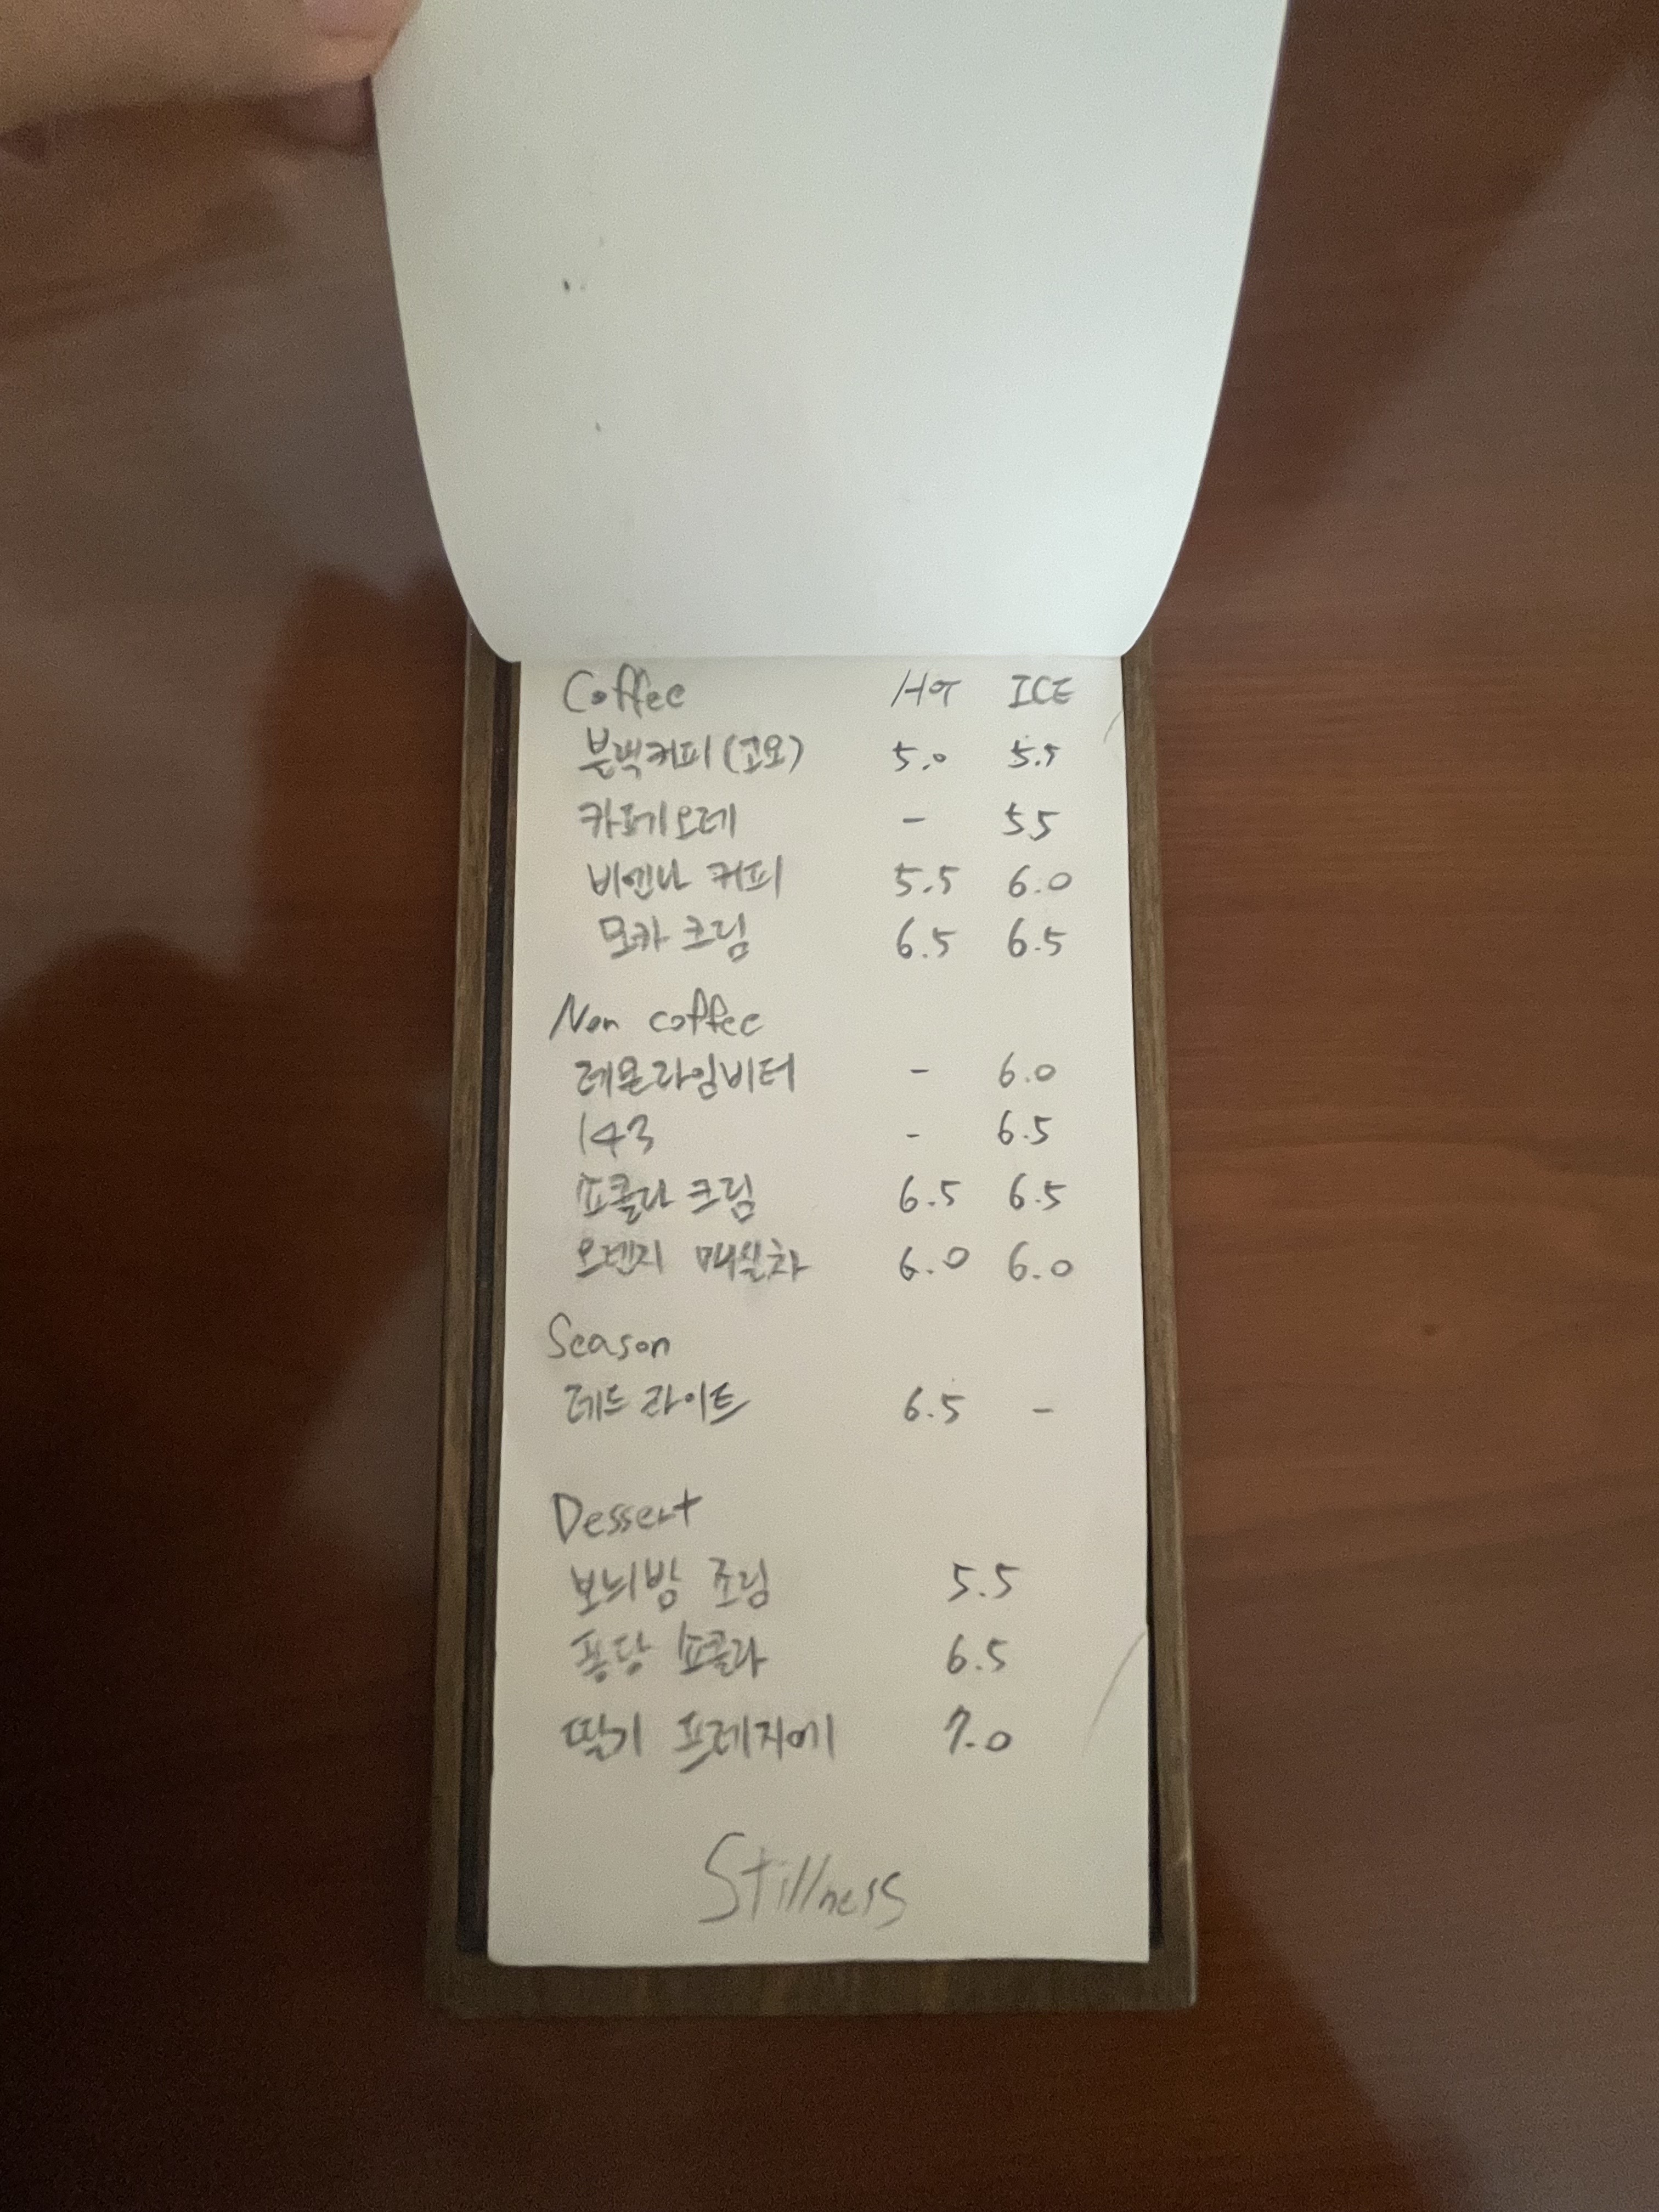 Coffee HOT ICE
블랙커피(고요) 5.0 5.5
카페오레 - 5.5
비엔나 커피 5.5 6.0
모카 크림 6.5 6.5
Non coffee
레몬라임비터 - 6.0
143 - 6.5
쇼콜라 크림 6.5 6.5
오렌지 매실차 6.0 6.0
Season
레드 라이트 6.5 -
Dessert
보늬밤 조림 5.5
퐁당 쇼콜라 6.5
딸기 프레지에 7.0
Stillness